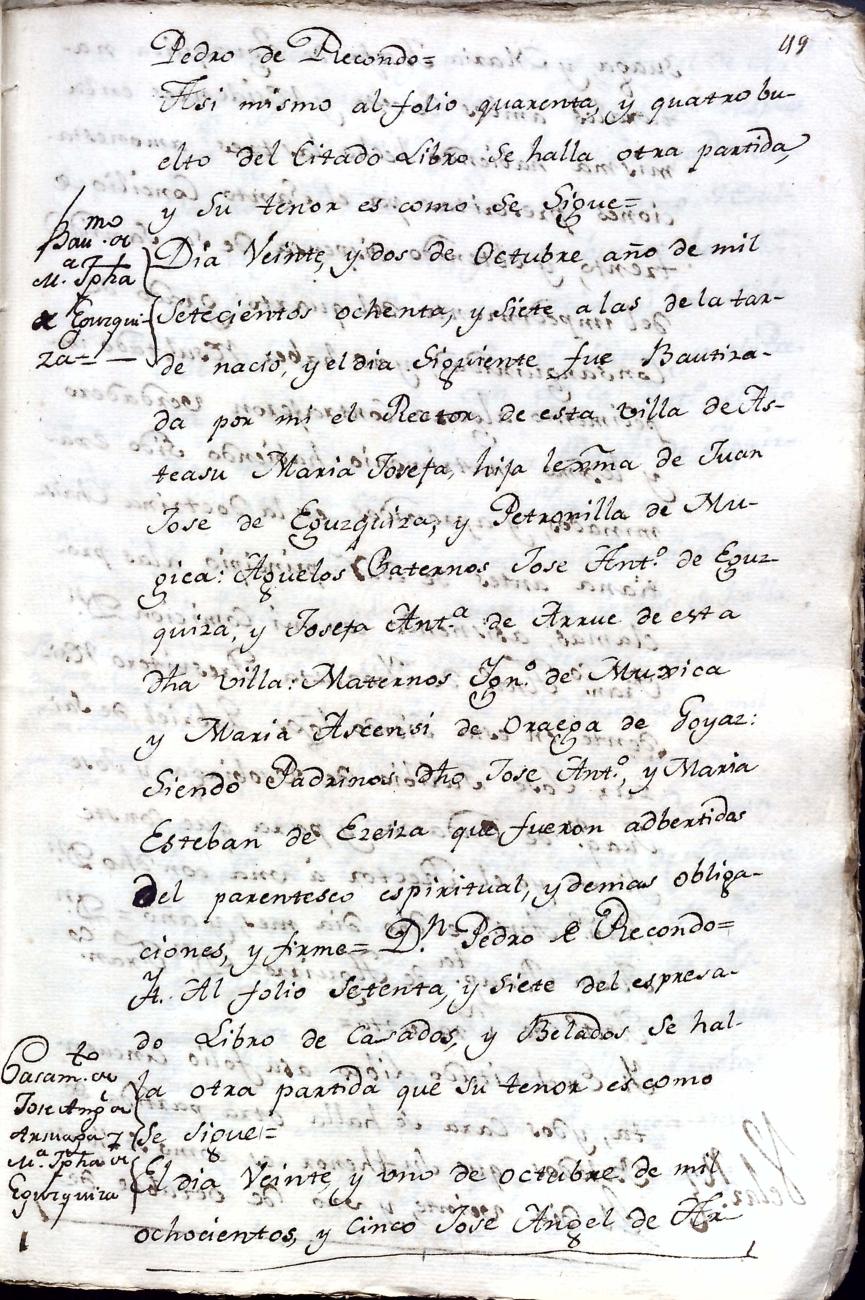 49
Pedro de Recondo=
Asi mismo al folio quarenta, y quatro bu-
elto del Citado Libro se halla otra partida,
y su tenor es como se sigue=
Bau.mo de
M.a Jpha
de Eguzqui-
za=
Dia Veinte, y dos de Octubre año de mil
setecientos ochenta, y siete a las de la tar-
de nació, y el dia siguiente fue Bautiza-
da por mi el Rector de esta villa de As-
teasu Maria Josefa, hija lexma de Juan
Jose de Eguzquiza, y Petronilla de Mu-
gica: Aguelos Paternos Jose Ant.o de Eguz-
quiza, y Josefa Ant.a de Arrue de esta
dha villa: Maternos Ygn.o de Muxica
y Maria Ascensi de Oraega de Goyaz:
siendo Padrinos dho Jose Ant.o, y Maria
Esteban de Ezeiza que fueron adbertidos
del parentesco espiritual, y demas obliga-
ciones, y firme= D.n Pedro de Recondo=
Yt. Al folio setenta, y siete del espresa-
do Libro de Casados, y Belados se hal-
la otra partida que su tenor es como
se sigue=
Casam.to de
Jose Ang.l de
Arsuaga y
M.a Jpha de
Eguzquiza
El dia Veinte, y uno de octubre de mil
ochocientos, y Cinco Jose Angel de Ar-